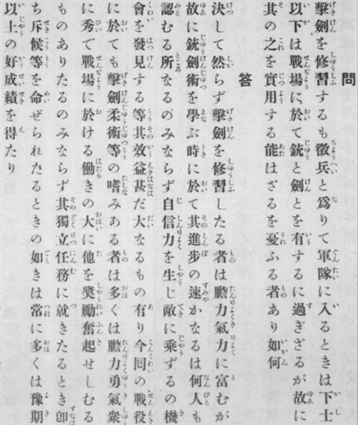 問
擊劍を修習するも徵兵と爲りて軍隊に入るときは下士
以下は戰場に於て銃と劍とを有するに過ぎざるが故に
其の之を實用する能はざるを憂ふる者あり如何
答
決して然らず擊劍を修習したる者は膽力氣力に富むが
故に銃劍術を學ぶ時に於て其進步の速かなるは何人も
認むる所なるのみならず自信力を生じ敵に乘ずるの機
會を發見する等其效益甚だ大なるもの有り今回の戰役
に於ても擊劍柔術等の嗜みある者は多くは膽力勇氣衆
に秀で戰場に於ける働きの大に他を奬勵奮起せしむる
ものありたるのみならず其獨立任務に就きたるとき卽
ち斥候等を命ぜられたるときの如きは常に多くは豫期
以上の好成績を得たり